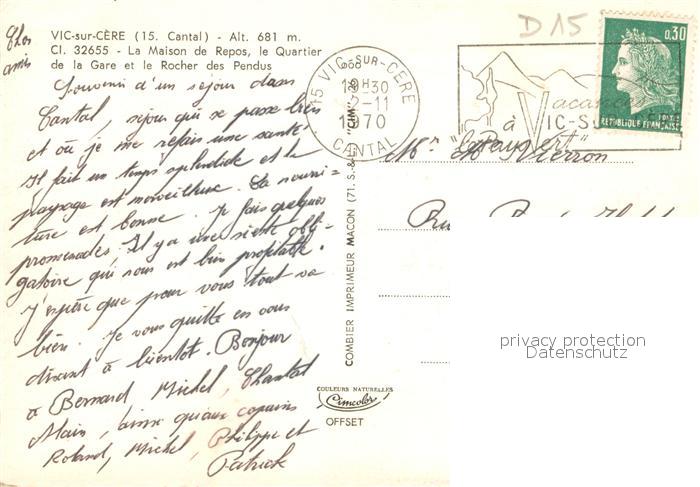 Chers
amis
VIC-sur-CÈRE (15. Cantal) - Alt. 681 m.
Cl. 32655 - La Maison de Repos, le Quartier
de la Gare et le Rocher des Pendus
Souvenir d'un séjour dans
Cantal, séjour qui se passe bien
et où je me refais une santé
Il fait un temps splendide et le
paysage est merveilleux. La nourri-
ture est bonne. Je fais quelques
promenades, Il y a une sieste obli-
gatoire qui nous est bien profitable.
J'espère que pour vous tout va
bien. Je vous quitte en vous
disant à bientôt. Bonjour
à Bernard, Michel, Chantal
Alain, ainsi qu'aux copains
Roland, Michel, Philippe et
Patrick
COMBIER IMPRIMEUR MACON (71. S.& "CIM"
COULEURS NATURELLES
Cimcolor
OFFSET
15 VIC-SUR-CÈRE
18H30
2-11
1970
CANTAL
D15
Vacances
à VIC-S
0,30
POSTES
RÉPUBLIQUE FRANÇAISE
Mr Mme Vierron
Rue
privacy protection
Datenschutz